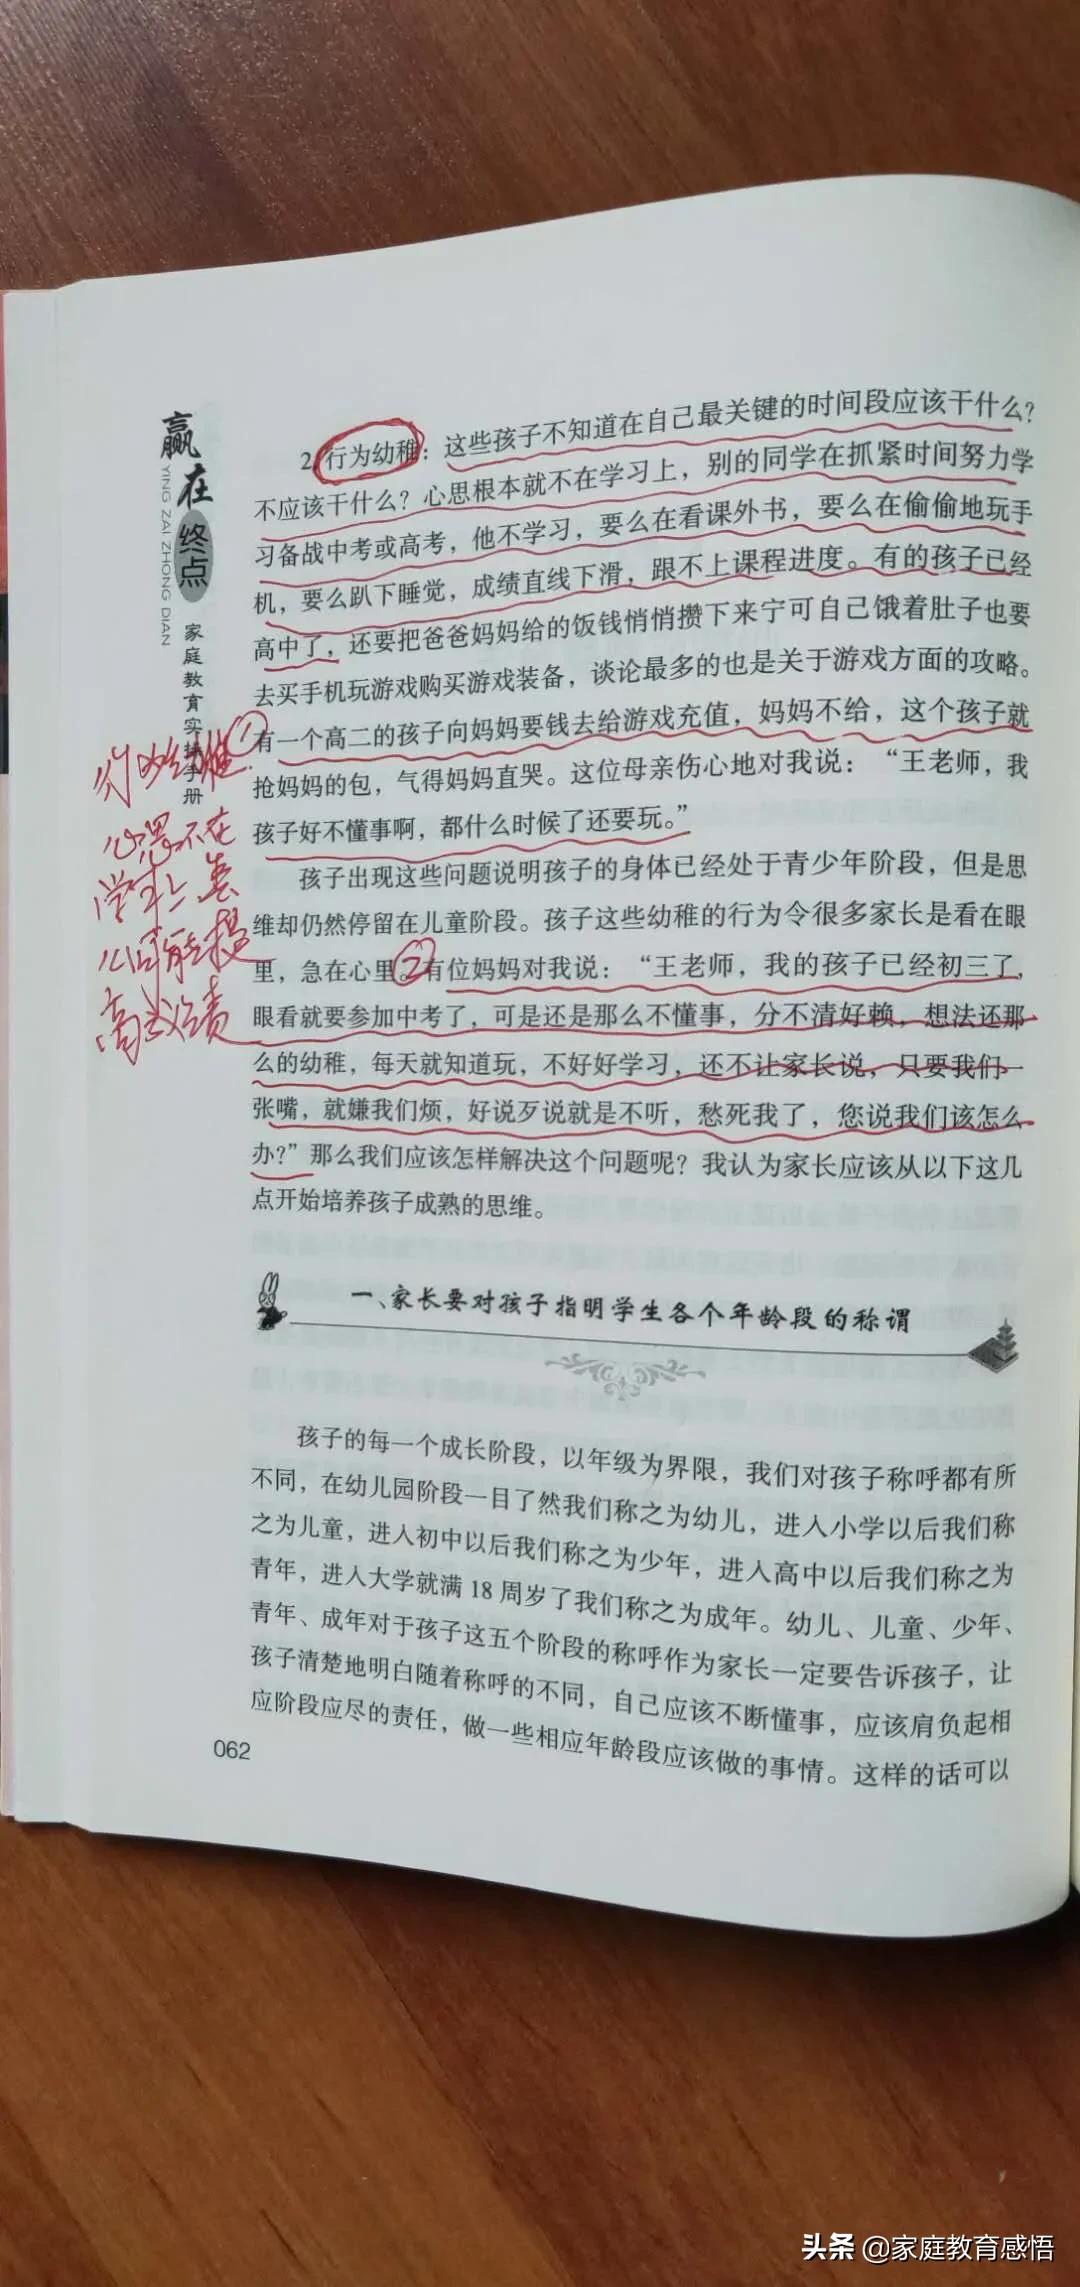 赢在终点
YING ZAI ZHONG DIAN
家庭教育实操手册
2.行为幼稚：这些孩子不知道在自己最关键的时间段应该干什么？
不应该干什么？心思根本就不在学习上，别的同学在抓紧时间努力学
习备战中考或高考，他不学习，要么在看课外书，要么在偷偷地玩手
机，要么趴下睡觉，成绩直线下滑，跟不上课程进度。有的孩子已经
高中了，还要把爸爸妈妈给的饭钱悄悄攒下来宁可自己饿着肚子也要
去买手机玩游戏购买游戏装备，谈论最多的也是关于游戏方面的攻略。
①
有一个高二的孩子向妈妈要钱去给游戏充值，妈妈不给，这个孩子就
抢妈妈的包，气得妈妈直哭。这位母亲伤心地对我说：“王老师，我
孩子好不懂事啊，都什么时候了还要玩。”
孩子出现这些问题说明孩子的身体已经处于青少年阶段，但是思
维却仍然停留在儿童阶段。孩子这些幼稚的行为令很多家长是看在眼
里，急在心里。②有位妈妈对我说：“王老师，我的孩子已经初三了，
眼看就要参加中考了，可是还是那么不懂事，分不清好赖，想法还那
么的幼稚，每天就知道玩，不好好学习，还不让家长说，只要我们一
张嘴，就嫌我们烦，好说歹说就是不听，愁死我了，您说我们该怎么
办？”那么我们应该怎样解决这个问题呢？我认为家长应该从以下这几
点开始培养孩子成熟的思维。
行为幼稚
心思不在
学习上怎
么可能提
高成绩
一、家长要对孩子指明学生各个年龄段的称谓
孩子的每一个成长阶段，以年级为界限，我们对孩子称呼都有所
不同，在幼儿园阶段一目了然我们称之为幼儿，进入小学以后我们称
之为儿童，进入初中以后我们称之为少年，进入高中以后我们称之为
青年，进入大学就满 18 周岁了我们称之为成年。幼儿、儿童、少年、
青年、成年对于孩子这五个阶段的称呼作为家长一定要告诉孩子，让
孩子清楚地明白随着称呼的不同，自己应该不断懂事，应该肩负起相
应阶段应尽的责任，做一些相应年龄段应该做的事情。这样的话可以
062
头条 @家庭教育感悟